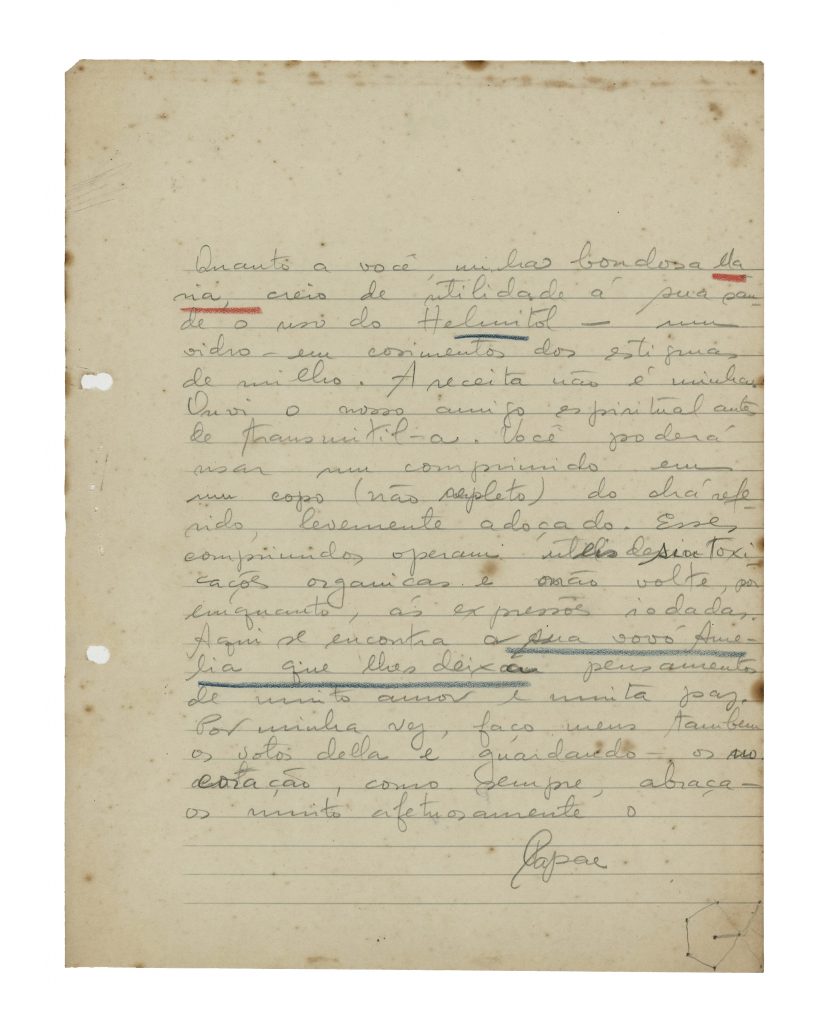 Quanto a você, minha bondosa Ma
ria, creio de utilidade á sua sau-
de o uso do Helmitol — um
vidro — em cosimentos dos estigmas
de milho. A receita não é minha.
Ouvi o nosso amigo espiritual antes
de transmitil-a. Você poderá
usar um comprimido em
um copo (não repleto) do chá refe-
rido, levemente adoçado. Esses
comprimidos operam uteis desintoxi
cações organicas e não volte, por
emquanto, ás expressões iodadas.
Aqui se encontra a sua vovó Ame-
lia que lhes deixa pensamentos
de muito amor e muita paz.
Por minha vez, faço meus tambem
os votos della e guardando-os no
coração, como sempre, abraça-
os muito afetuosamente o
Papae